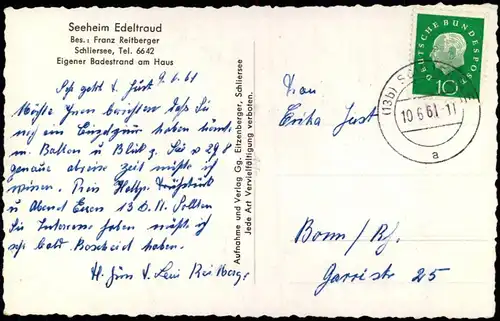 Seeheim Edeltraud
Bes.: Franz Reitberger
Schliersee, Tel. 6642
Eigener Badestrand am Haus
9.6.61
Sehr geehrt. F. Just
Möchte Ihnen berichten daß Sie
bei mir ein Einzelzimmer haben könnte
m. Balkon u Blick z. See v 29
genaue abreise Zeit müßte ich
wissen. Preis Frühstück
u Abend Essen 13 D.M. Sollten
Sie Interesse haben müßte ich
sehr bald Bescheid haben.
Reitberger
Aufnahme und Verlag Gg. Eitzenberger, Schliersee
Jede Art Vervielfältigung verboten.
DEUTSCHE BUNDESPOST
10
(13b)
10.6.61.11
a
Erika Just
Bonn/Rh.
25